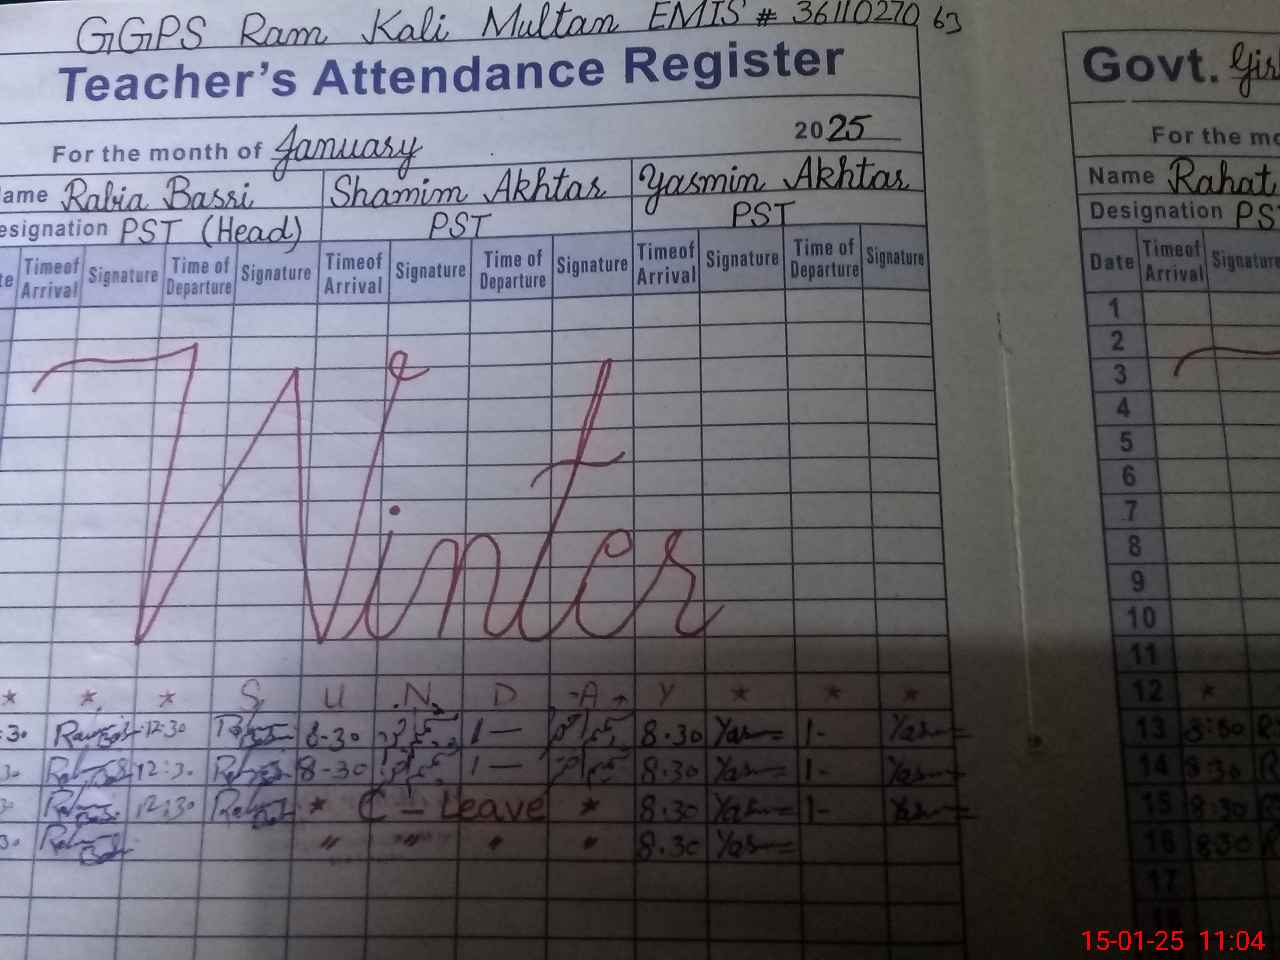 GGPS Ram Kali Multan EMIS # 36110270 63
Teacher's Attendance Register
For the month of January 2025
ame Rabia Bassi Shamim Akhtar Yasmin Akhtar
esignation PST (Head) PST PST
te Timeof Arrival Signature Time of Departure Signature Timeof Arrival Signature Time of Departure Signature Timeof Arrival Signature Time of Departure Signature
Winter
* * * S U N D A Y * * *
:30 12:30 8-30 1 — 8.30 Yas 1- Yas
30 12:30 8-30 1 — 8.30 Yas 1- Yas
30 12:30 * C - Leave * 8.30 Yas 1- Yas
30 " " " " 8.30 Yas
Govt. Girl
For the mo
Name Rahat
Designation PST
Date Timeof Arrival Signature
1
2
3
4
5
6
7
8
9
10
11
12 *
13 8:30 R
14 8:30 R
15 8:30 R
16 8:30 R
17
18
15-01-25 11:04